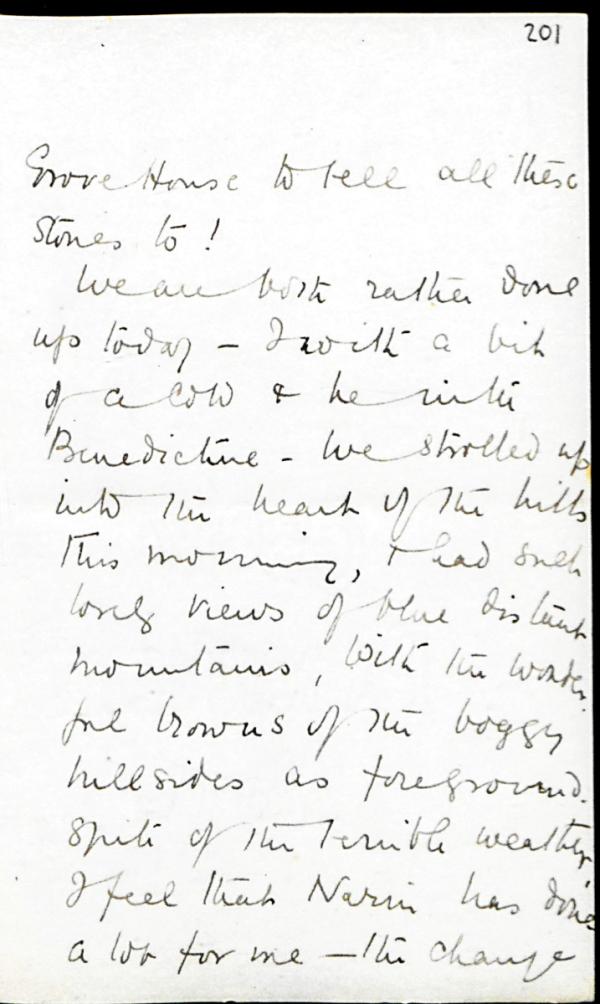 201
Grove House to tell all these
stories to!
We are both rather done
up today – I with a bit
of a cold & he with
Benedictine – We strolled up
into the heart of the hills
this morning, & had such
lovely views of blue distant
mountains, with the wonder
ful browns of the boggy
hillsides as foreground.
Spite of the terrible weather
I feel that Narin has done
a lot for me – the change